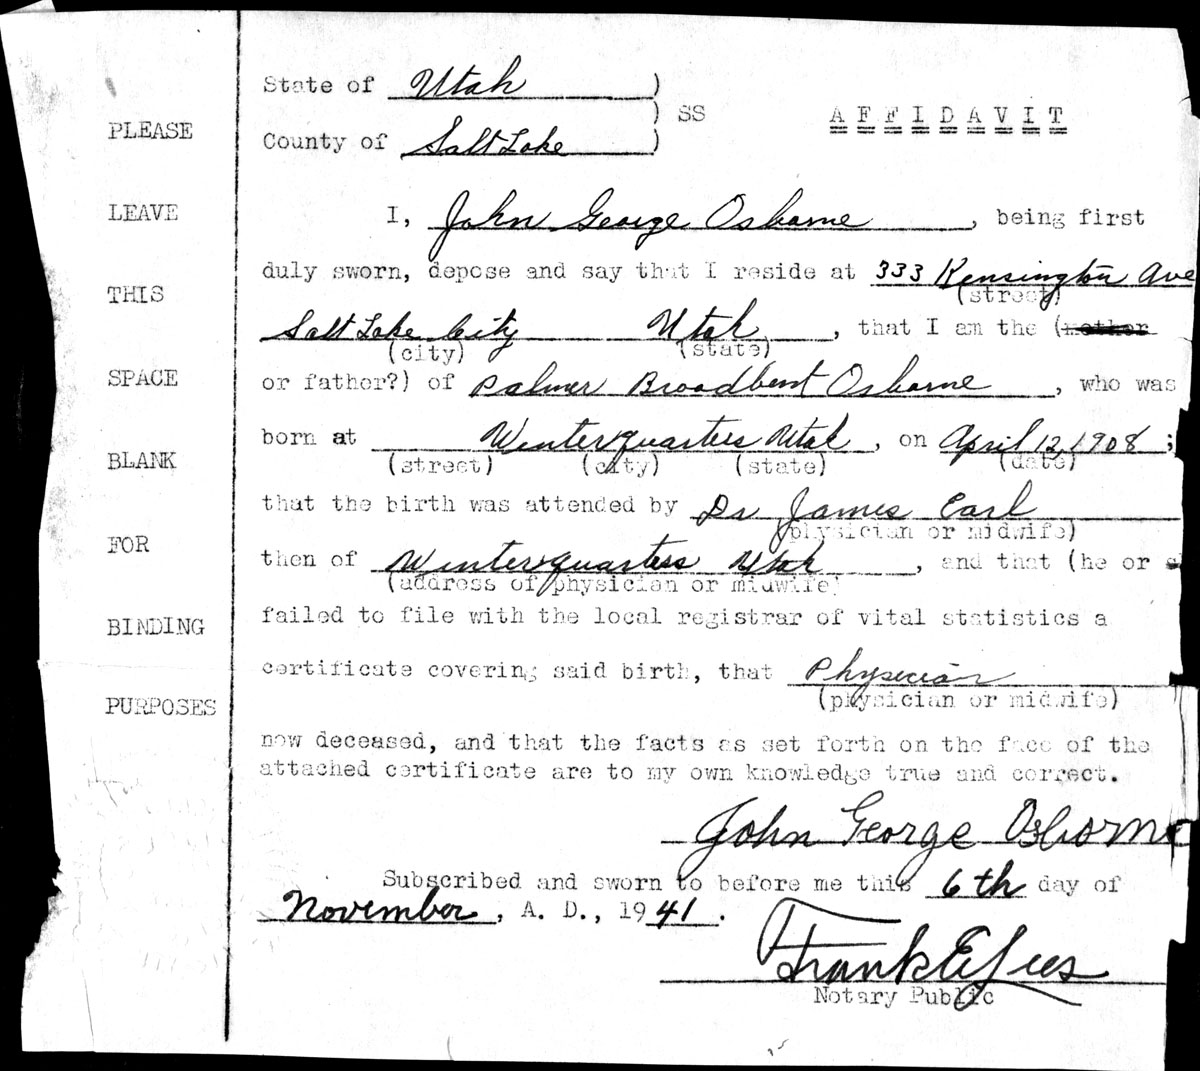 PLEASE
LEAVE
THIS
SPACE
BLANK
FOR
BINDING
PURPOSES
State of Utah )
) SS AFFIDAVIT
County of Salt Lake )
I, John George Osborne, being first
duly sworn, depose and say that I reside at 333 Kensington Ave
(street)
Salt Lake City Utah, that I am the (mother
(city) (state)
or father?) of Palmer Broadbent Osborne, who was
born at Winterquarters Utah, on April 12, 1908;
(street) (city) (state) (date)
that the birth was attended by Dr James Earl
(physician or midwife)
then of Winterquarters Utah, and that (he or s
(address of physician or midwife)
failed to file with the local registrar of vital statistics a
certificate covering said birth, that Physician
(physician or midwife)
now deceased, and that the facts as set forth on the face of the
attached certificate are to my own knowledge true and correct.
John George Osborne
Subscribed and sworn to before me this 6th day of
November, A. D., 1941.
Frank E Lees
Notary Public